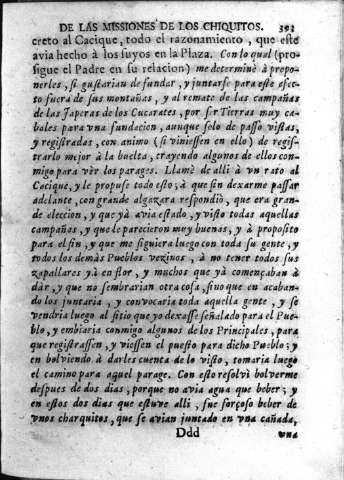 DE LAS MISSIONES DE LOS CHIQUITOS. 393
creto al Cacique, todo el razonamiento, que este
avia hecho à los suyos en la Plaza. Con lo qual (pro-
sigue el Padre en su relacion) me determinè à propo-
nerles, si gustarian de fundar, y juntarse para este efec-
to fuera de sus montañas, y al remate de las campañas
de las Taperas de los Cucarates, por ser Tierras muy ca-
bales para vna fundacion, aunque solo de passo vistas,
y registradas, con animo (si viniessen en ello) de regis-
trarlo mejor à la buelta, trayendo algunos de ellos con-
migo para vèr los parages. Llamè de alli à vn rato al
Cacique, y le propuse todo esto; à que sin dexarme passar
adelante, con grande algazara respondiò, que era gran-
de eleccion, y que yà avia estado, y visto todas aquellas
campañas, y que le parecieron muy buenas, y à proposito
para el fin, y que me siguiera luego con toda su gente, y
todos los demàs Pueblos vezinos, à no tener todos sus
zapallares yà en flor, y muchos que yà començaban à
dàr, y que no sembrarian otra cosa, sino que en acaban-
do los juntaria, y convocaria toda aquella gente, y se
vendria luego al sitio que yo dexasse señalado para el Pue-
blo, y embiaria conmigo algunos de los Principales, para
que registrassen, y viessen el puesto para dicho Pueblo; y
en bolviendo à darles cuenta de lo visto, tomaria luego
el camino para aquel parage. Con esto resolvì bolverme
despues de dos dias, porque no avia agua que beber; y
en estos dos dias que estuve alli, fue forçoso beber de
vnos charquitos, que se avian juntado en vna cañada,
Ddd vna